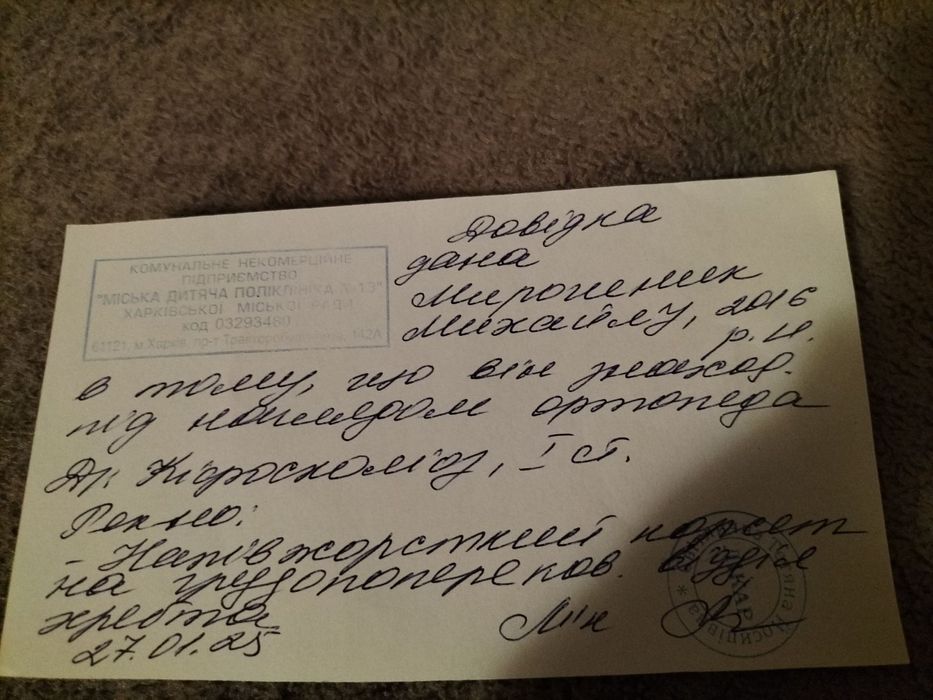 КОМУНАЛЬНЕ НЕКОМЕРЦІЙНЕ
ПІДПРИЄМСТВО
"МІСЬКА ДИТЯЧА ПОЛІКЛІНІКА №13"
ХАРКІВСЬКОЇ МІСЬКОЇ РАДИ
код 03293480
61121, м.Харків, пр-т Тракторобудівників, 142А
Довідка
дана
Михайлу, 2016
р.н.
в тому, що він знаход.
під наглядом ортопеда
Д: Кіфосколіоз, І ст.
Рек-но:
- Напівжорсткий корсет
на грудопопереков. відділ
хребта
27.01.25